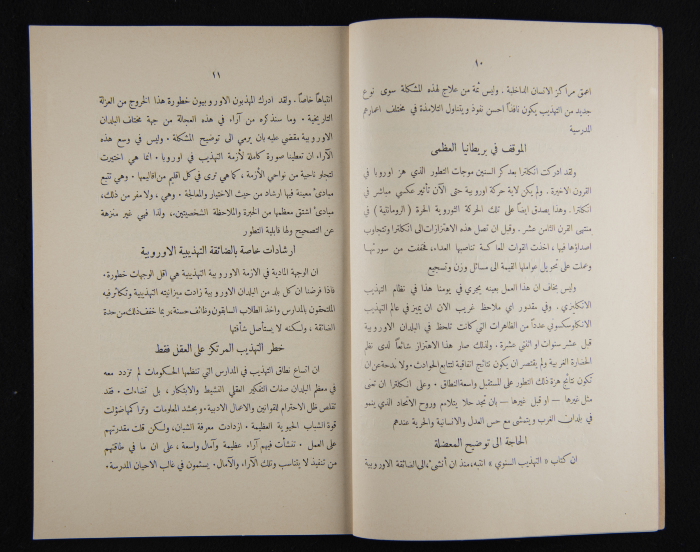 ١٠
اعمق مراكز الانسان الداخلية . وليس ثمة من علاج لهذه المشكلة سوى نوع
جديد من التهذيب يكون نافذاً احسن نفوذ ويتناول التلامذة في مختلف اعمارهم
المدرسية
الموقف في بريطانيا العظمى
ولقد ادركت انكلترا بعد كر السنين موجات التطور الذي هز اوروبا في
القرون الاخيرة . ولم يكن لاية حركة اوروبية حتى الآن تأثير عكسي مباشر في
انكلترا . وهذا يصدق ايضاً على تلك الحركة الثوروية الحرة ( الرومانتية ) في
منتهى القرن الثامن عشر . وقبل ان تصل هذه الاهتزازات الى انكلترا وتتجاوب
اصداؤها فيها ، اخذت القوات المعاكسة تناصبها العداء ، فخففت من سورتها
وعملت على تحويل عواملها القيمة الى مسائل وزن وتسجيع
وليس بخاف ان هذا العمل بعينه يجري في يومنا هذا في نظام التهذيب
الانكليزي . وفي مقدور اي ملاحظ غريب الان ان يميز في عالم التهذيب
الانكلوسكسوني عدداً من الظاهرات التي كانت تلحظ في البلدان الاوروبية
قبل عشر سنوات او اثنتي عشرة . ولذلك صار هذا الاهتزاز شائعاً لدى نظم
الحضارة الغربية ولم يقتصر ان يكون نتائج اتفاقية لتتابع الحوادث . ولا ندحة عن ان
تكون نتائج هزة ذلك التطور على المستقبل واسعة النطاق . وعلى انكلترا ان تعى
مثل غيرها — او قبل غيرها — بان تجد حلا يتلاءم وروح الاتحاد الذي ينمو
في بلدان الغرب ويتمشى مع حس العدل والانسانية والحرية عندهم
الحاجة الى توضيح المعضلة
ان كتاب « التهذيب السنوي » انتبه ، منذ ان أنشىء ، الى الضائقة الاوروبية
١١
انتباهاً خاصاً . ولقد ادرك المهذبون الاوروبيون خطورة هذا الخروج من العزلة
التاريخية . وما سنذكره من آراء في هذه العجالة من جهة مختلف البلدان
الاوروبية مقضي عليه بان يرمي الى توضيح المشكلة . وليس في وسع هذه
الآراء ان تعطينا صورة كاملة لأزمة التهذيب في اوروبا . انما هي اختيرت
لتجلو ناحية من نواحي الأزمة ، كما هي ترى في كل اقليم من اقاليمها . وهي تتبع
مبادىء معينة فيها ارشاد من حيث الاختيار والمعالجة . وهي ، ولا مفر من ذلك ،
مبادىء اشتق معظمها من الخبرة والملاحظة الشخصيتين ، ولذا فهي غير منزهة
عن التصحيح ولها قابلية التطور
ارشادات خاصة بالضائقة التهذيبية الاوروبية
ان الوجهة المادية في الازمة الاوروبية التهذيبية هي اقل الوجهات خطورة .
فاذا فرضنا ان كل بلد من البلدان الاوروبية زادت ميزانيته التهذيبية وتكاثر فيه
الملتحقون بالمدارس واخذ الطلاب السابقون وظائف حسنة ، ربما خفف ذلك من حدة
الضائقة ، ولكنه لا يستأصل شأفتها
خطر التهذيب المرتكز على العقل فقط
ان اتساع نطاق التهذيب في المدارس التي تنظمها الحكومات لم تزدد معه
في معظم البلدان صفات التفكير العقلي النشيط والابتكار ، بل تضاءلت . فقد
تقلص ظل الاحترام للقوانين والاعمال الادبية . وبحشد المعلومات وتراكمها ضؤلت
قوة الشباب الحيوية العظيمة . ازدادت معرفة الشبان ، ولكن قلت مقدرتهم
على العمل . تنشأت فيهم آراء عظيمة وآمال واسعة ، على ان ما في طاقتهم
من تنفيذ لا يتناسب وتلك الآراء والآمال . يستمون في غالب الاحيان المدرسة .